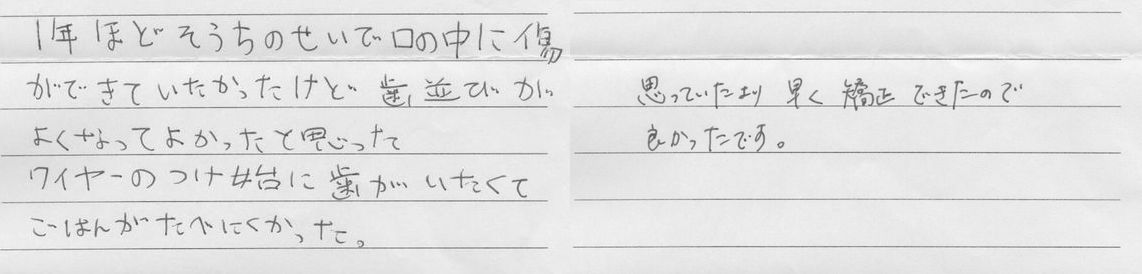 1年ほどそうちのせいで口の中に傷
ができていたかったけど歯並びが
よくなってよかったと思った
ワイヤーのつけ始に歯がいたくて
ごはんがたべにくかった。
思っていたより早く矯正できたので
良かったです。